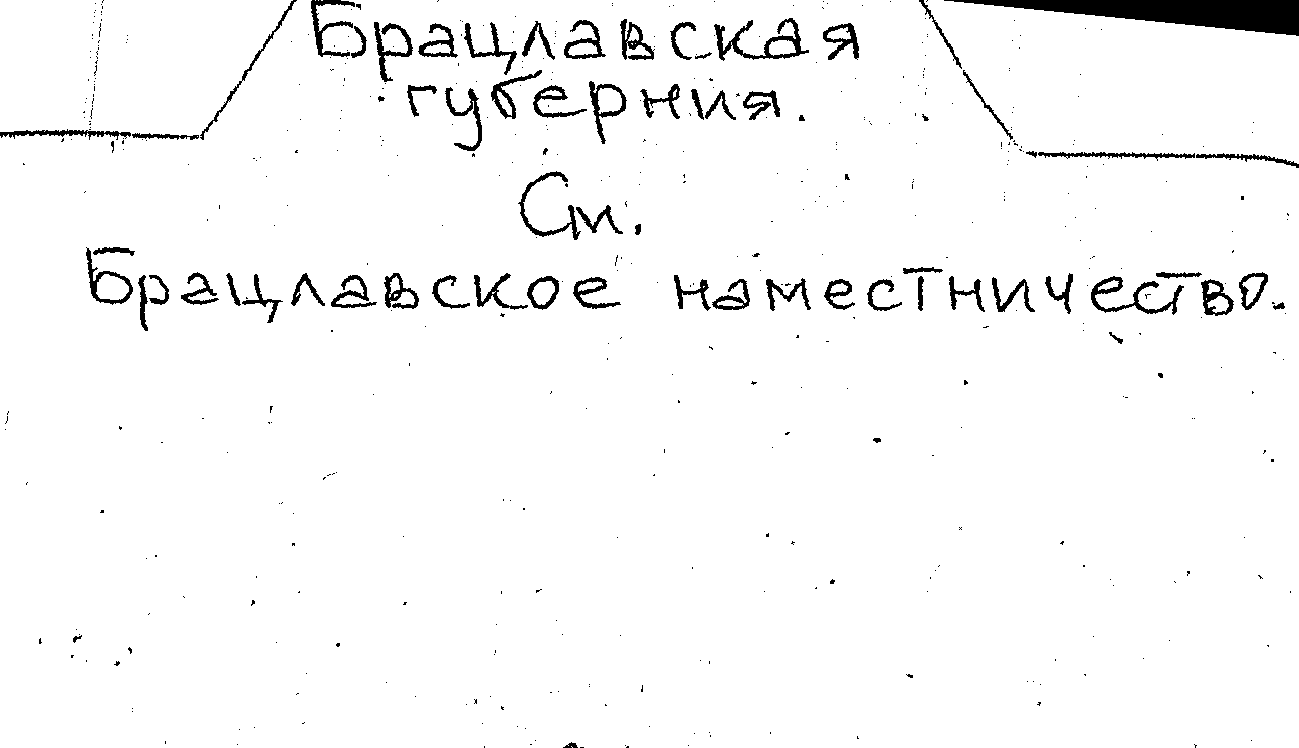 Брацлавская
губерния.
См.
Брацлавское наместничество.